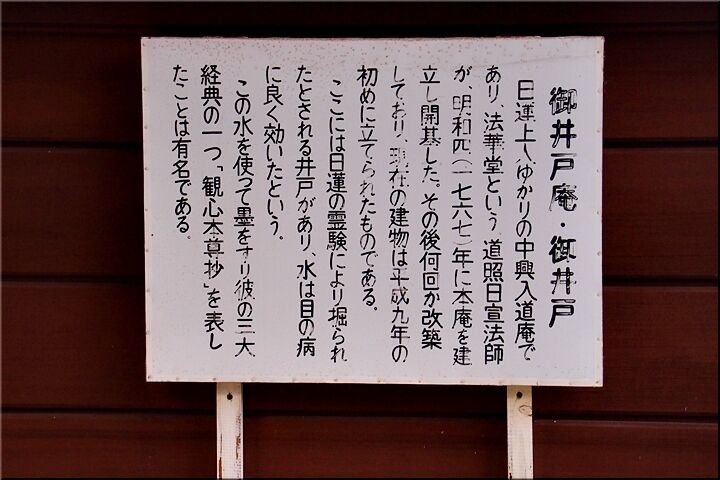 御井戸庵・御井戸
日蓮上人ゆかりの中興入道庵で
あり、法華堂という。道照日宣法師
が、明和四(一七六七)年に本庵を建
立し開基した。その後何回か改築
しており、現在の建物は平成九年の
初めに立てられたものである。
ここには日蓮の霊験により掘られ
たとされる井戸があり、水は目の病
に良く効いたという。
この水を使って墨をすり彼の三大
経典の一つ「観心本尊抄」を表し
たことは有名である。